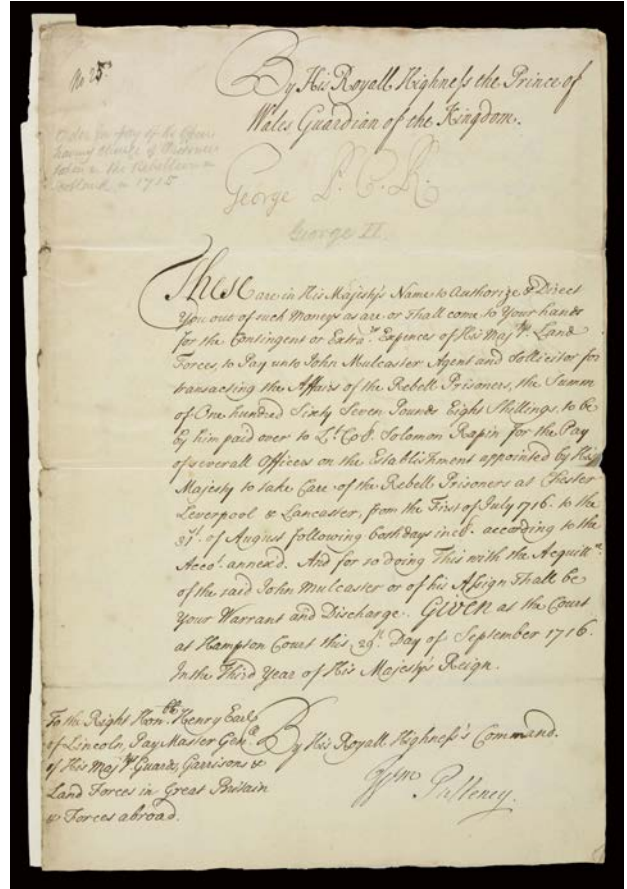 No 25
By His Royall Highness the Prince of
Wales Guardian of the Kingdom.
Order for pay of the Officers
having charge of Prisoners
taken in the Rebellion in
Scotland in 1715
George P. C. R.
George II.
These are in His Majestys Name to Authorize & Direct
You out of such Moneys as are or shall come to Your hands
for the Contingent or Extra.ry Expences of His Maj.tys Land
Forces, to Pay unto John Mulcaster Agent and Sollicitor for
transacting the Affairs of the Rebell Prisoners, the Summ
of One hundred Sixty Seven Pounds Eight Shillings, to be
by him paid over to L.t Col. Solomon Rapin for the Pay
of severall Officers on the Establishment appointed by His
Majesty to take Care of the Rebell Prisoners at Chester
Leverpool & Lancaster, from the First of July 1716. to the
31st. of August following both days incl. according to the
Acco.t annex'd. And for so doing This with the Acquitt.ce
of the said John Mulcaster or of his Assign shall be
Your Warrant and Discharge. Given at the Court
at Hampton Court this 29th. Day of September 1716.
In the Third Year of His Majestys Reign.
To the Right Hon.ble Henry Earl
of Lincoln, Pay Master Gen.ll
of His Maj.tys Guards, Garrisons &
Land Forces in Great Britain
& Forces abroad.
By His Royall Highness's Command.
Wm Pulteney.